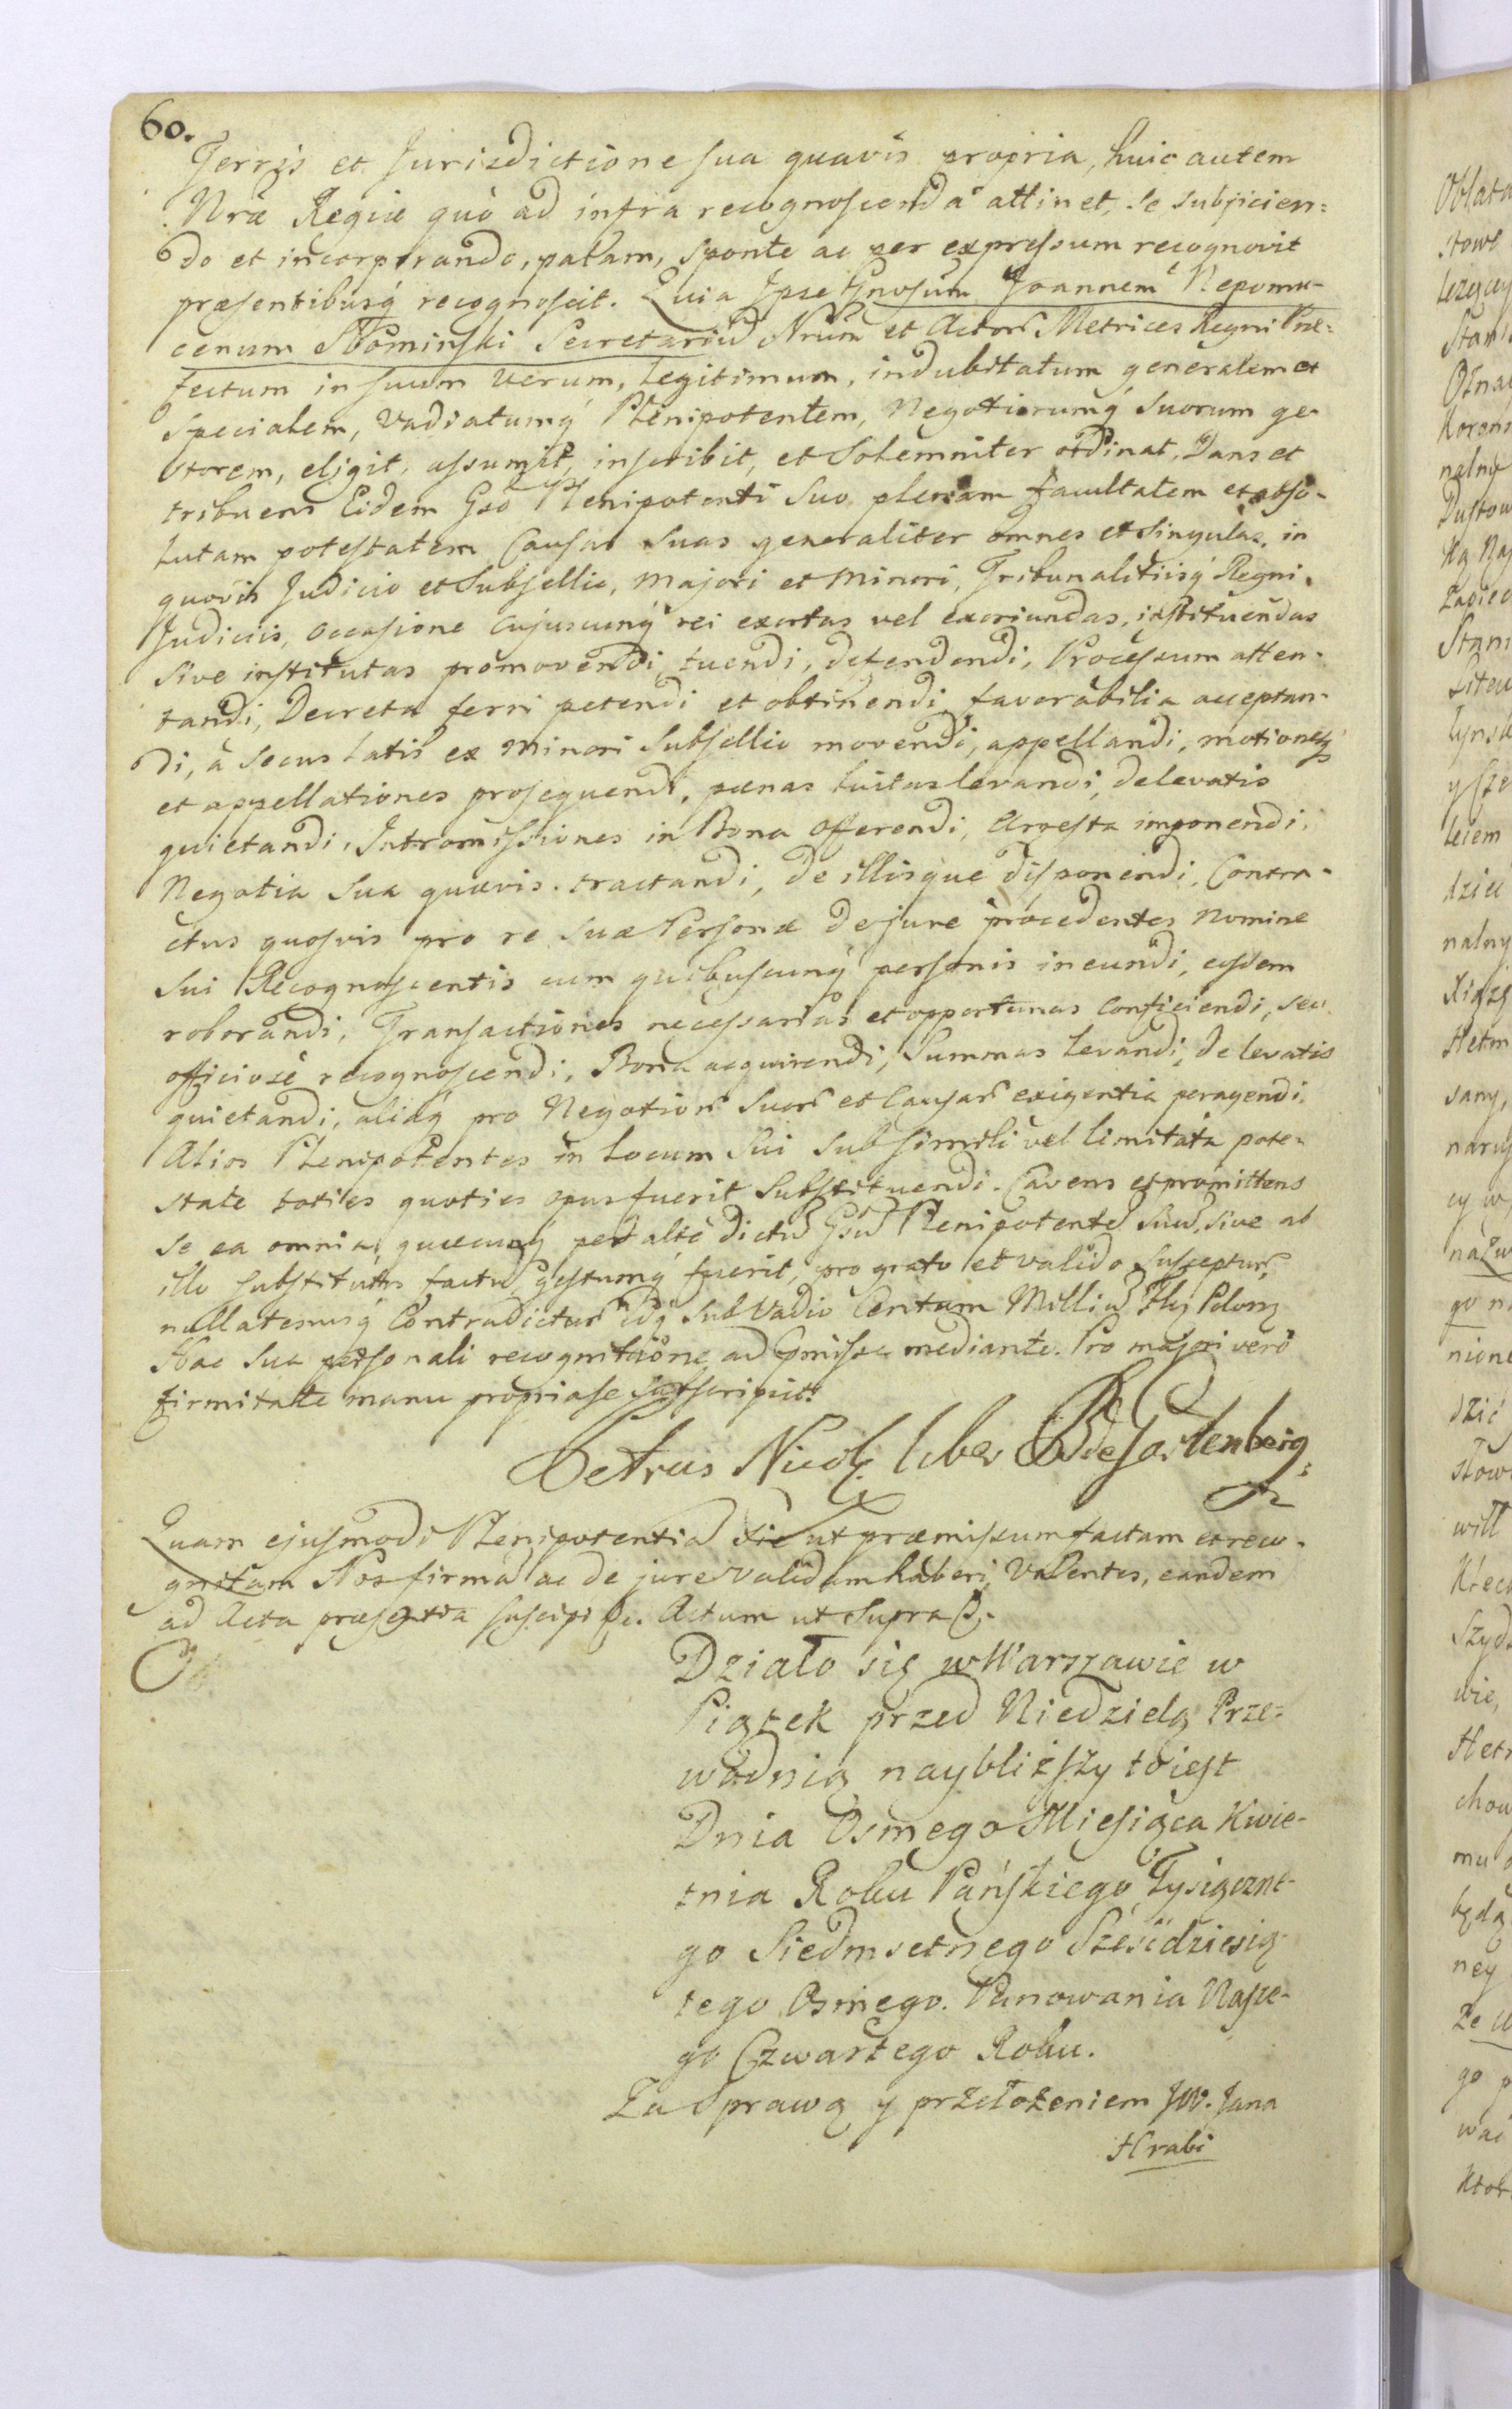 60.
Terris et Jurisdictione sua quavis propria, huic autem
Nræ Regiæ quò ad infra recognoscenda attinet, se subjicien=
do et incorporando, palam, sponte ac per expressum recognovit
præsentibusq recognoscit. Quia Ipse Gnosum Joannem Nepomu-
cenum Słominski Secretariũ Nrum et Actorũ Metrices Regni Præ=
fectum in suum verum, legitimum, indubitatum generalem et
Specialem, Vadiatumq Plenipotentem, Negotiorumq suorum ge-
storem, eligit, assumit, inscribit, et Solemniter ordinat. Dans et
tribuens Eidem Gsô Plenipotenti suo plenam facultatem et abso-
lutam potestatem Causas suas generaliter omnes et singulas, in
quovis Judicio et Subsellio, Majori et Minori, Tribunalitiisq Regni
Judiciis, occasione cujuscunq rei exortas vel exoriundas, instituendas
sive institutas promovendi, tuendi, defendendi, Processum atten-
tandi, Decreta ferri petendi et obtinendi, favorabilia acceptan-
di, à secus latis ex Minori Subsellio movendi, appellandi, motionesq
et appellationes prosequendi, pænas luitas levandi, de levatis
quietandi, Intromissiones in Bona offerendi, Arresta imponendi,
Negotia sua quævis tractandi, de illisque disponendi, Contra-
ctus quosvis pro re suæ Personæ de jure procedentes nomine
sui Recognoscentis cum quibuscunq personis ineundi, eosdem
roborandi, Transactiones necessarias et opportunas conficiendi, seu
officiose recognoscendi, Bona acquirendi, Summas levandi, de levatis
quietandi, aliaq pro Negotiorũ suorũ et Causarũ exigentia peragendi.
Alios Plenipotentes in locum sui sub simili vel limitata pote-
state toties quoties opus fuerit substituendi. Cavens et promittens
se ea omnia, quæcunq per altè dictũ Gsũ Plenipotentẽ suũ, sive ab
illo substitutũ factũ gestumq fuerit, pro grato et valido susceptur,
nullatenusq Contradictur idq sub Vadio Centum Milliũ Flor Polon
Hac sua personali recognitione ad præmissa mediante. Pro majori verò
firmitate manu propria se subscripsit.
Petrus Nicol. liber B de Gartenberg
Quam ejusmodi Plenipotentiã sic ut præmissum factam et reco-
gnitam Nos firmã ac de jure validam haberi Volentes, eandem
ad Acta præsentia suscipi &c. Actum ut supra
Działo się w Warszawie w
Piątek przed Niedzielą Prze-
wodnią naybliższy toiest
Dnia Osmego Miesiąca Kwie-
tnia Roku Pańskiego Tysiączne-
go Siedmsetnego Sześćdziesią-
tego Osmego. Panowania Nasze-
go Czwartego Roku.
Za Sprawą y przełożeniem JW. Jana
Hrabi